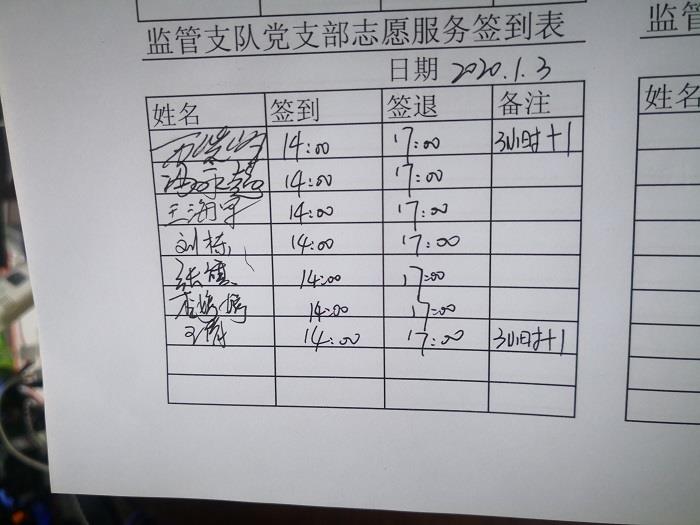 监管支队党支部志愿服务签到表
监管
日期 2020.1.3
姓名 签到 签退 备注
姓名
14:00 17:00 3小时+1
14:00 17:00
王海宇 14:00 17:00
刘栋 14:00 17:00
张慎 14:00 17:00
14:00 17:00
14:00 17:00 3小时+1